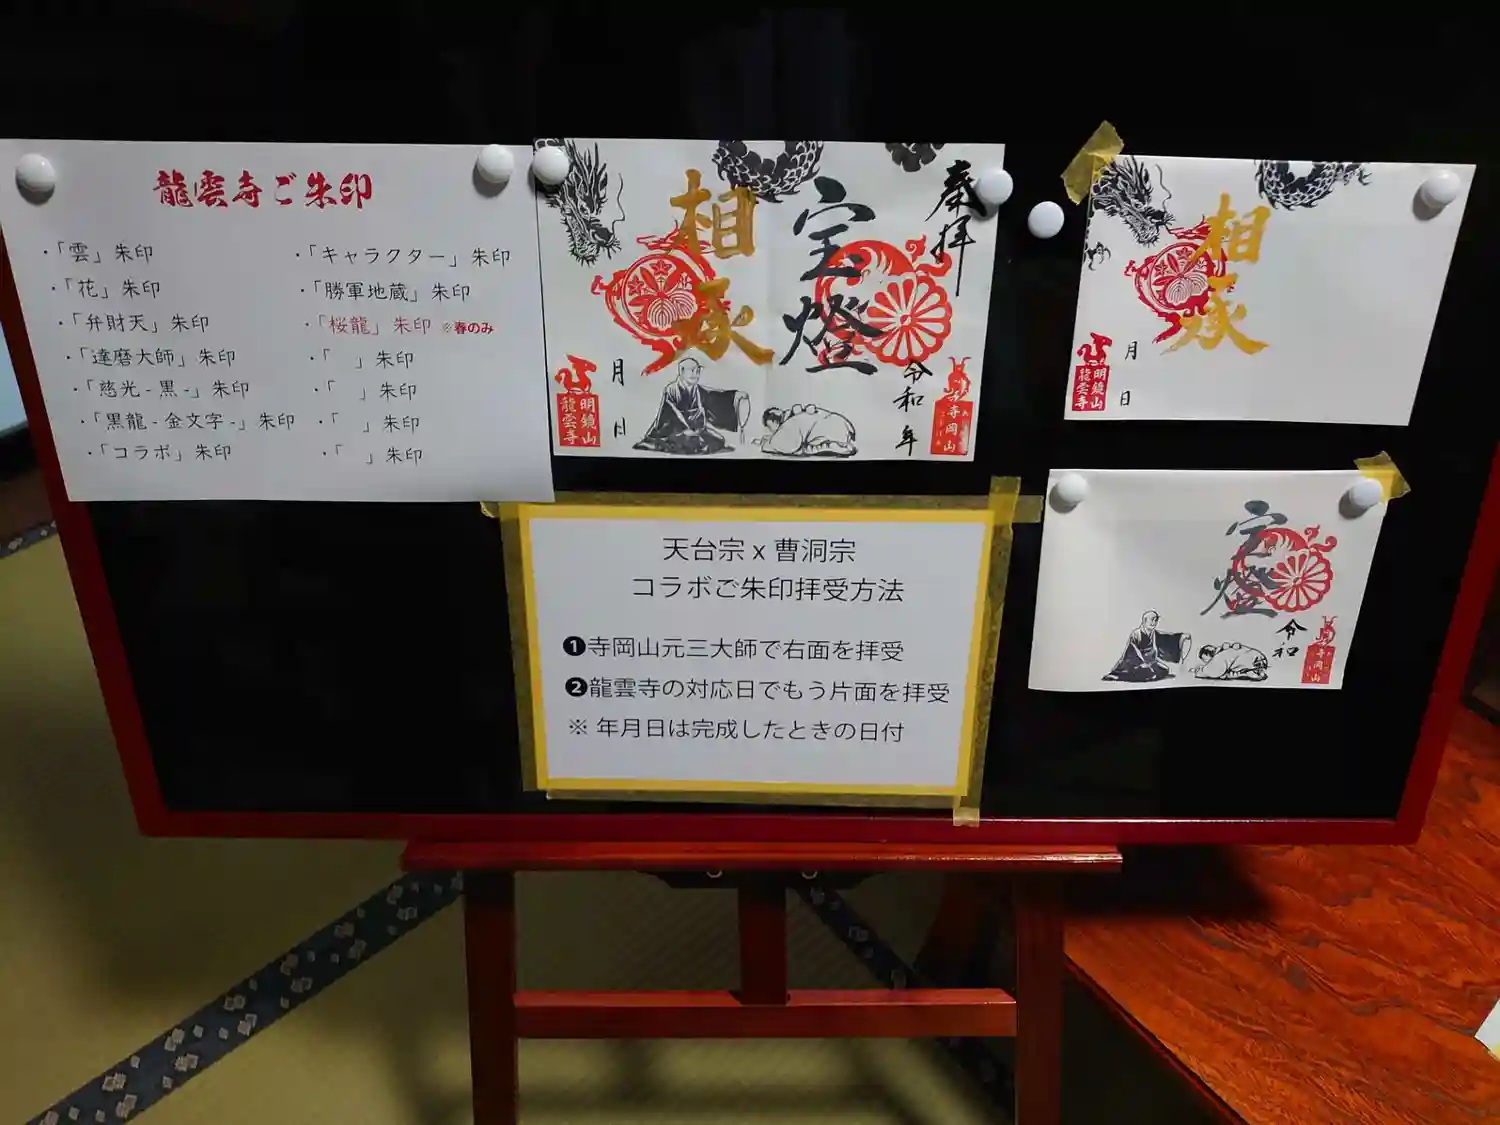 龍雲寺ご朱印
・「雲」朱印
・「花」朱印
・「弁財天」朱印
・「達磨大師」朱印
・「慈光 - 黒 -」朱印
・「黒龍 - 金文字 -」朱印
・「コラボ」朱印
・「キャラクター」朱印
・「勝軍地蔵」朱印
・「桜龍」朱印 ※春のみ
・「　」朱印
・「　」朱印
・「　」朱印
・「　」朱印
奉拝
宝燈
令和 年
寺岡山
相承
月 日
明鏡山
龍雲寺
相承
月 日
明鏡山
龍雲寺
天台宗 x 曹洞宗
コラボご朱印拝受方法
❶寺岡山元三大師で右面を拝受
❷龍雲寺の対応日でもう片面を拝受
※ 年月日は完成したときの日付
宝燈
令和
寺岡山